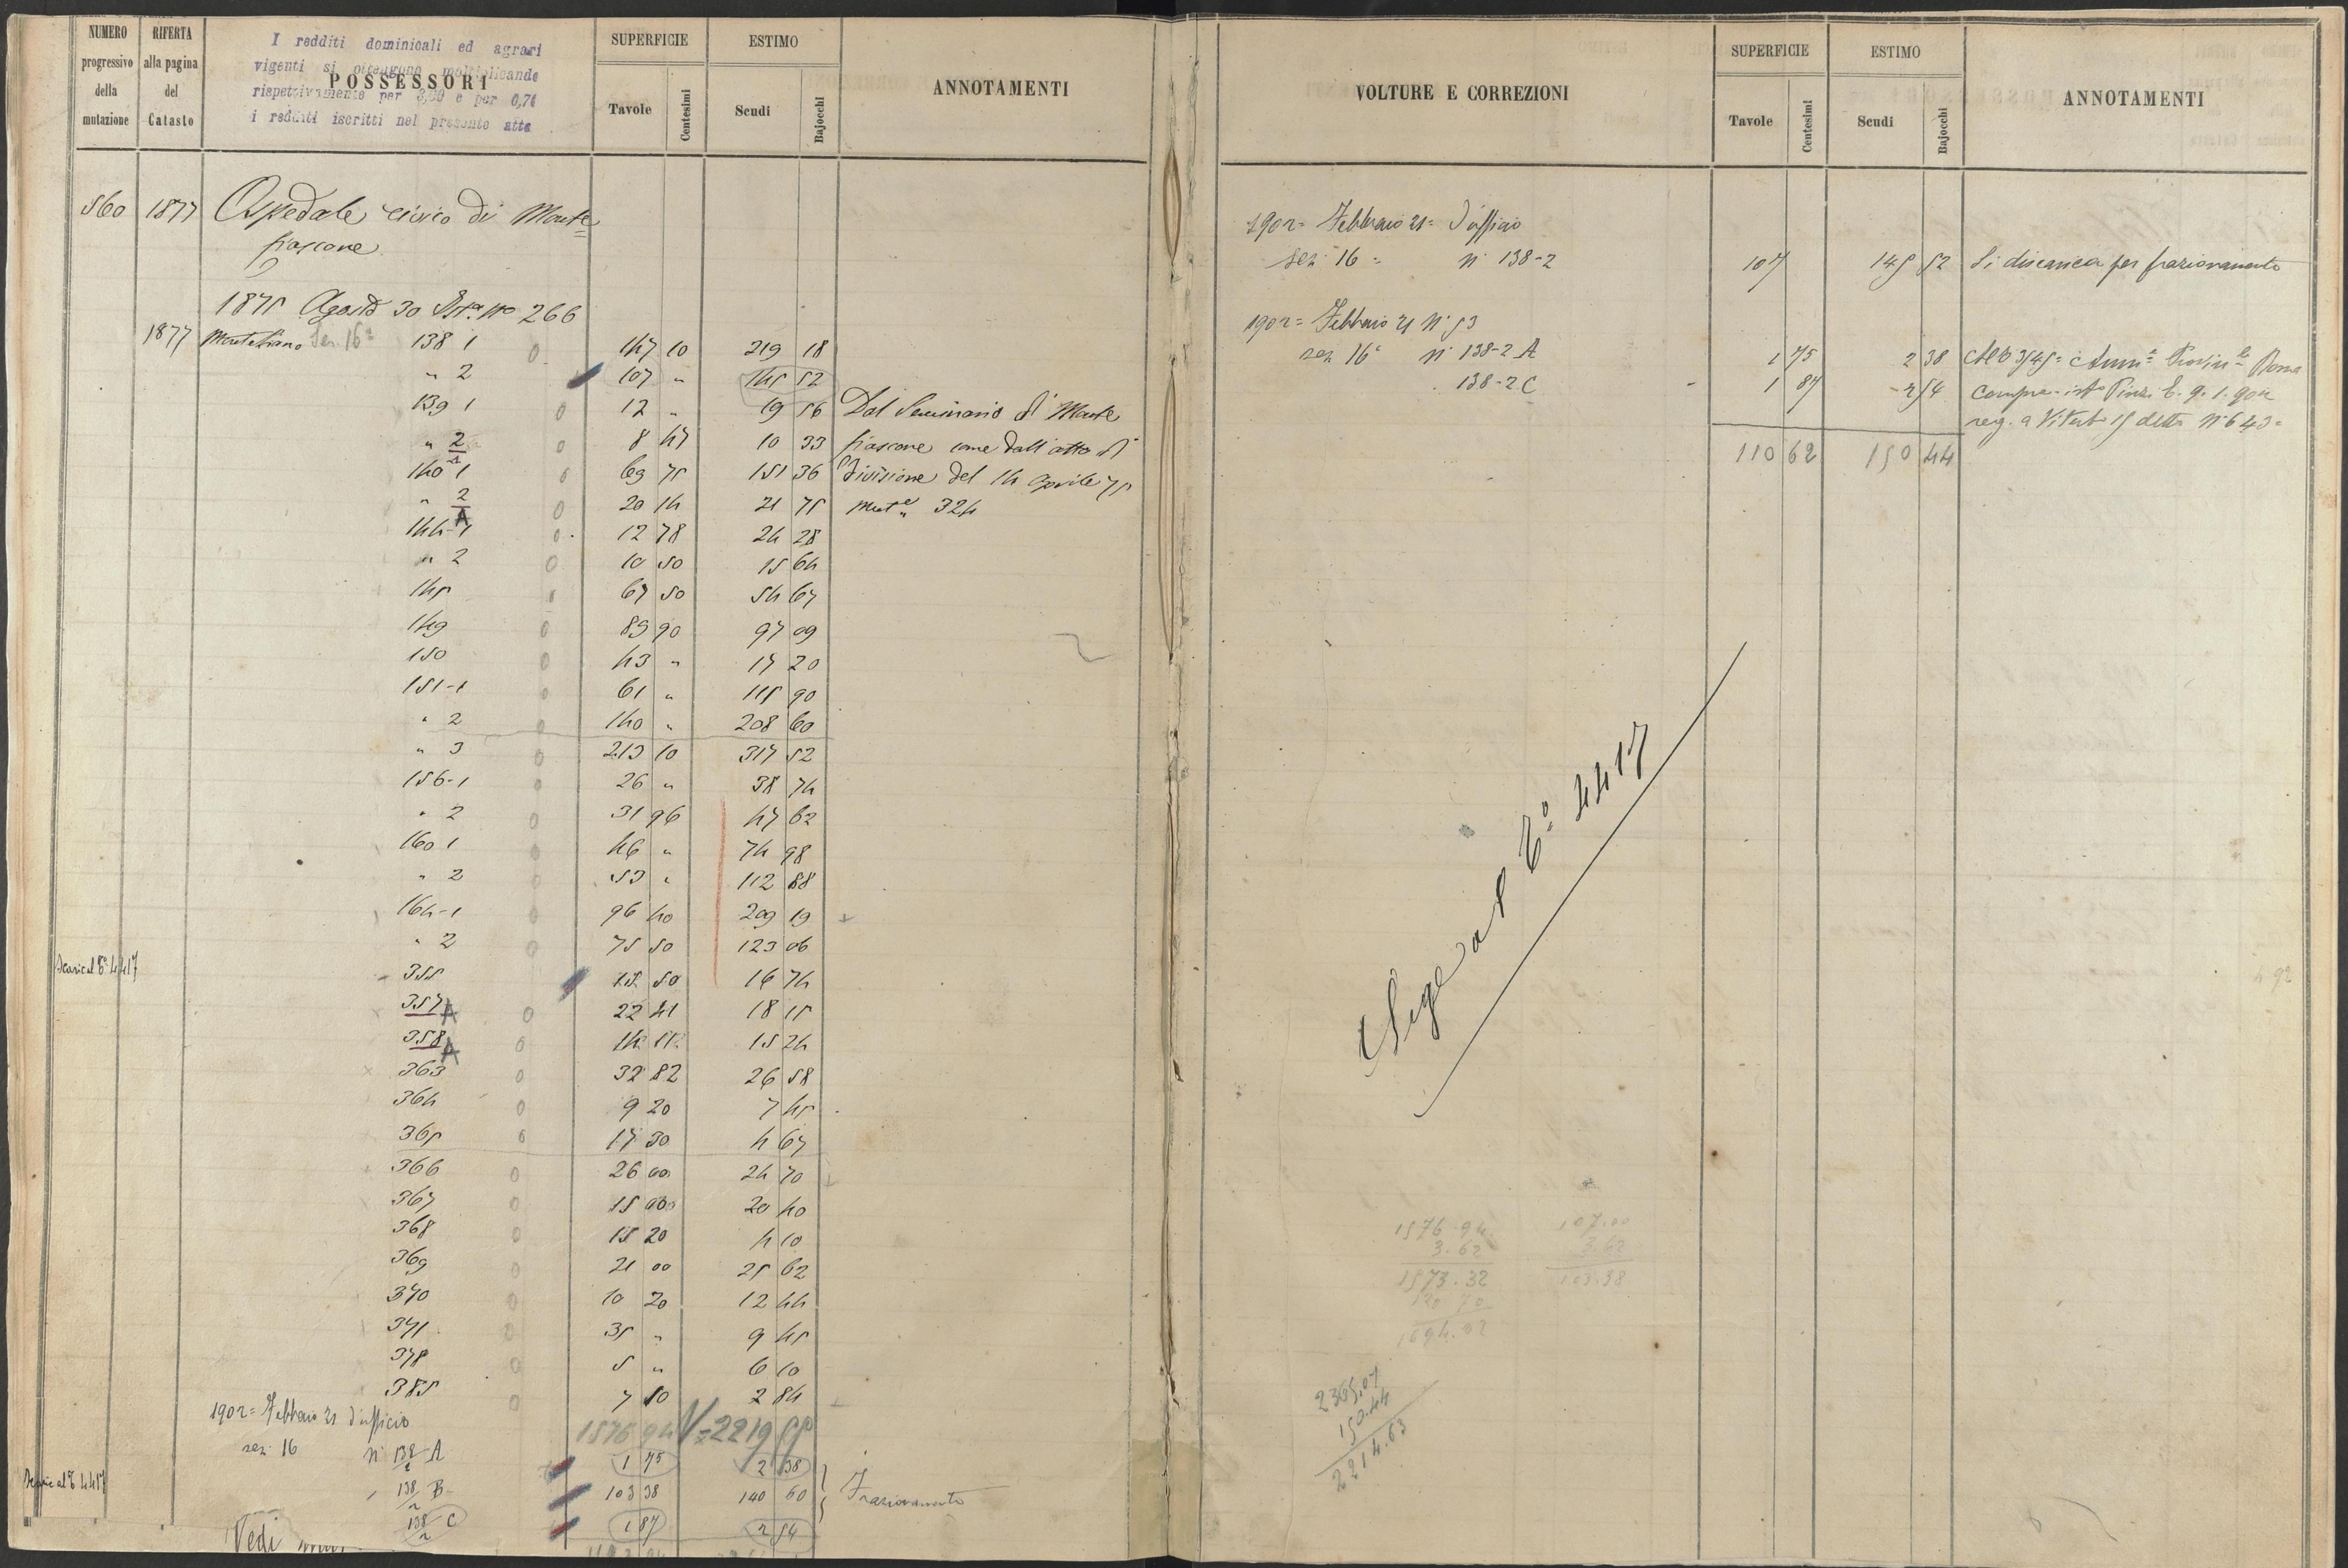 NUMERO progressivo della mutazione
RIFERTA alla pagina del Catasto
POSSESSORI
I redditi dominicali ed agrari
vigenti si ottengono moltiplicando
rispettivamente per 3,20 e per 0,74
i redditi iscritti nel presente atto
SUPERFICIE
Tavole Centesimi
ESTIMO
Scudi Bajocchi
ANNOTAMENTI
560 1877 Ospedale civico di Monte=
fiascone
1875 Agosto 30 266
1877 Sez. 16ª 138 1 147 10 219 18
" 2 107 " 145 52
139 1 12 " 19 56 Dal Seminario di Monte
" 2 8 47 10 33 fiascone come dall'atto di
140 1 69 75 151 36 Divisione del 14 Aprile 75
" 2 20 14 21 75 Mutª 324
A
144-1 12 78 24 28
" 2 10 50 15 64
145 67 50 54 67
149 89 90 97 09
150 43 " 17 20
151-1 61 " 115 90
" 2 140 " 208 60
" 3 213 10 317 52
156-1 26 " 38 74
" 2 31 96 47 62
160 1 46 " 74 98
" 2 53 " 112 88
164-1 96 40 209 19
" 2 75 50 123 06
Scarical Tº 4417
355 15 50 16 74
357 A 22 41 18 15
358 A 14 15 24
363 32 82 26 58
364 9 20 7 45
365 17 30 4 67
366 26 00 24 70
367 15 00 20 40
368 15 20 4 10
369 21 00 25 62
370 10 20 12 44
371 35 " 9 45
378 5 " 6 10
385 7 10 2 84
1902= Febbraio 21 d'ufficio 1576 94 2219
sez. 16 nº 138/2 A 1 75 2 38
138/2 B 103 38 140 60 Frazionamento
138/2 C 1 87 2 54
Vedi
VOLTURE E CORREZIONI
SUPERFICIE
Tavole Centesimi
ESTIMO
Scudi Bajocchi
ANNOTAMENTI
1902= Febbraio 21= d'ufficio
sez. 16 = nº 138-2 107 145 52 Si discarica per frazionamento
1902= Febbraio 21 Nº 53
sez. 16ª nº 138-2 A 1 75 2 38
138-2 C 1 87 2 54
reg. a Viterbo 15 detto Nº 643=
110 62 150 44
Segue al Tº 4417
1576.94 107.00
3.62 3.62
1573.32 103.38
120 70
1694.02
2365.07
150.44
2214.63